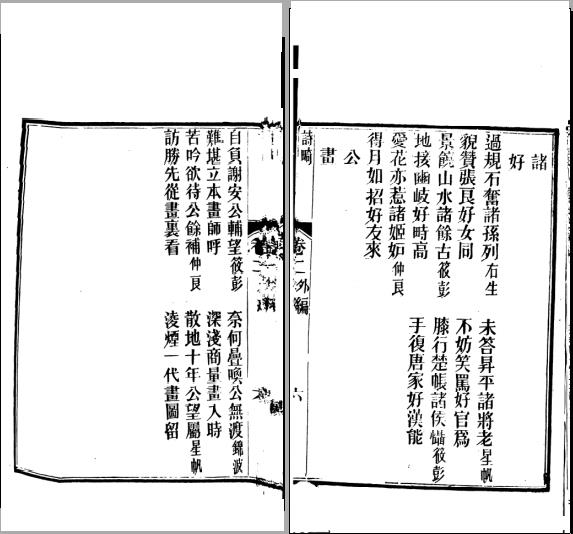 諸
好
過規石奮諸孫列右生
未答昇平諸將老星帆
貌贊張良好女同
不妨笑罵好官爲
景饒山水諸餘古筱彭
膝行楚帳諸侯懾筱彭
地接豳岐好畤高
手復唐家好漢能
愛花亦惹諸姬妒仲良
得月如招好友來
公
畫
詩畸
卷二外編
六
自負謝安公輔望筱彭
奈何疊喚公無渡錦波
難堪立本畫師呼
深淺商量畫入時
苦吟欲待公餘補仲良
散地十年公望屬星帆
訪勝先從畫裏看
淩煙一代畫圖留